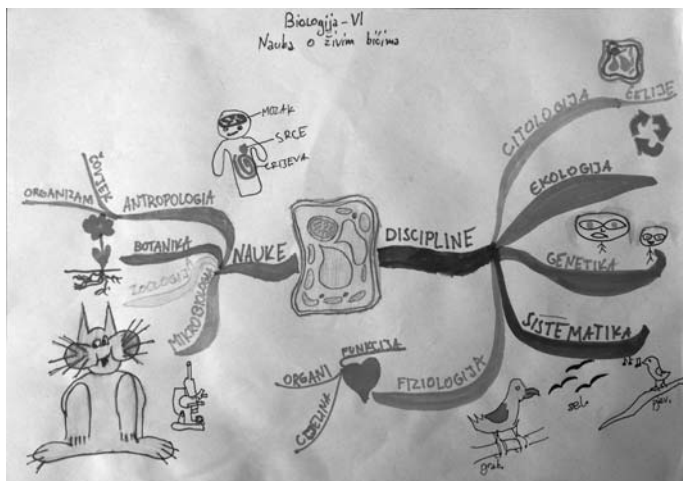 Biologija-VI
Nauka o živim bićima
MOZAK
SRCE
CRIJEVA
ČOVJEK
ORGANIZAM
ANTROPOLOGIA
BOTANIKA
ZOOLOGIJA
MIKROBIOLOGIJA
NAUKE
DISCIPLINE
CITOLOGIJA
ĆELIJE
EKOLOGIJA
GENETIKA
SISTEMATIKA
FIZIOLOGIJA
FUNKCIJA
ORGANI
CJELINA
grab.
sel.
pjev.